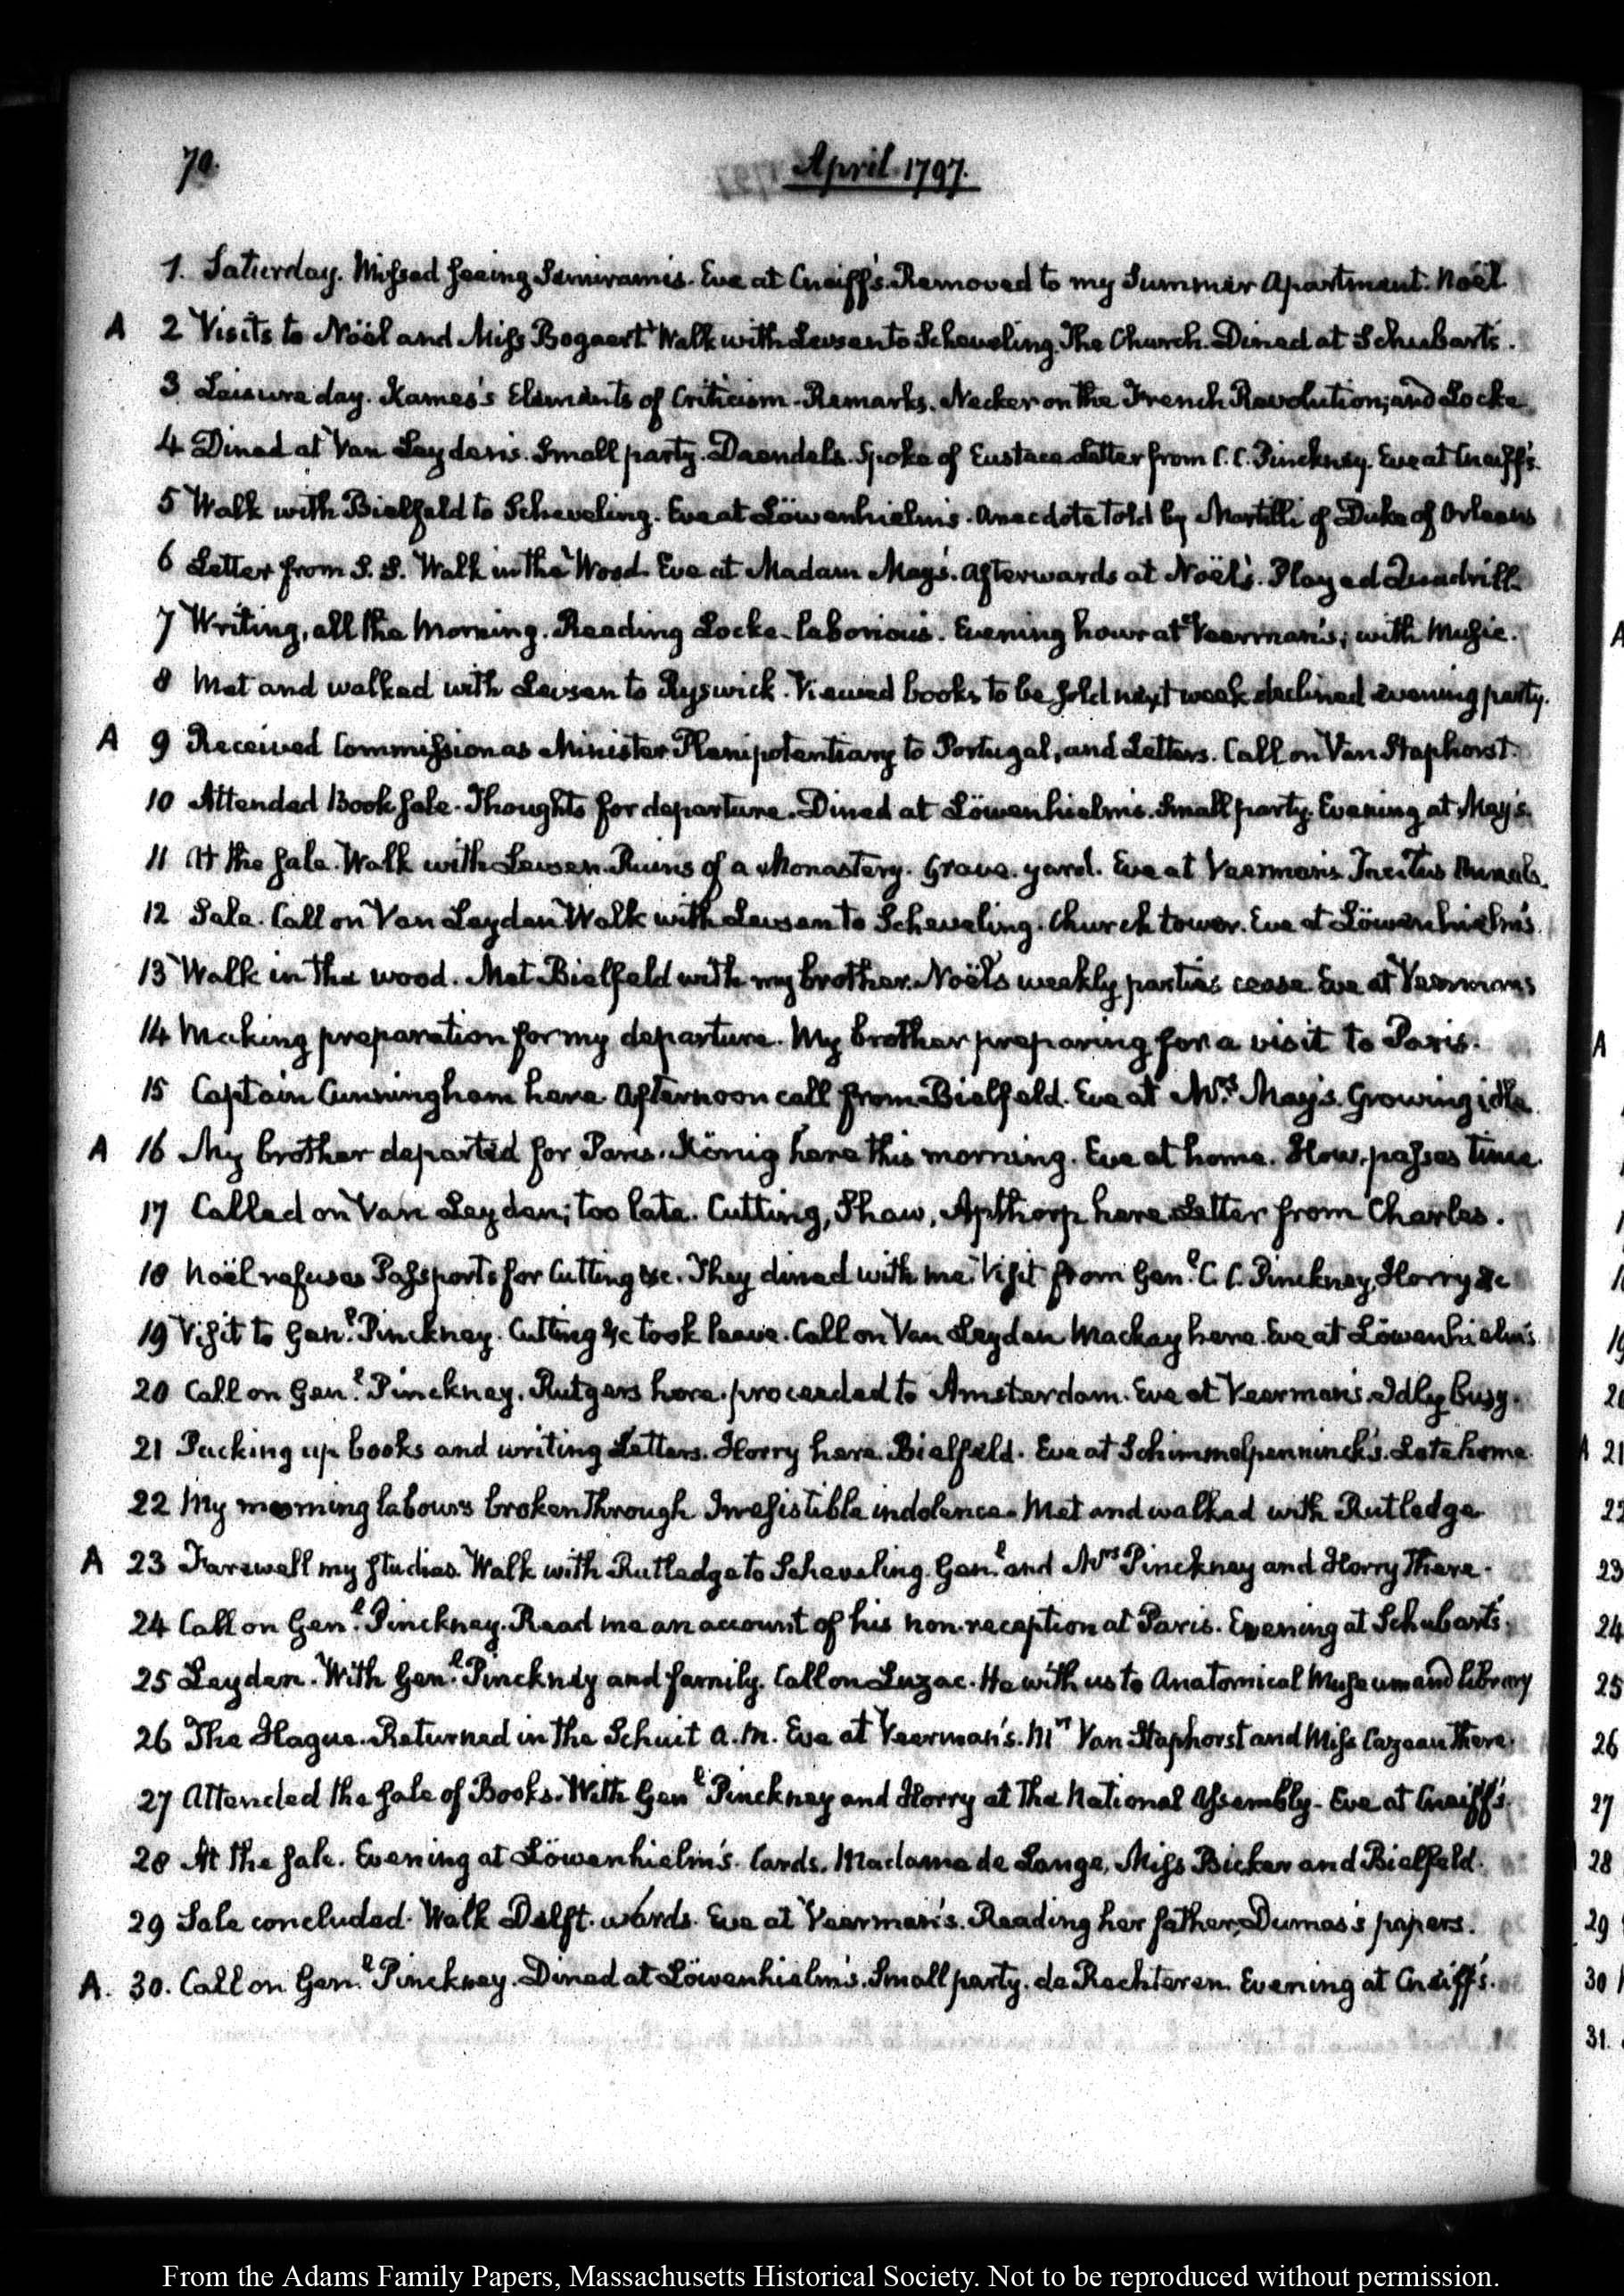 70.
April. 1797.
1. Saturday. Missed seeing Semiramis. Eve at Cneiff's. Removed to my Summer Apartment. Noël.
A 2 Visits to Nöel and Miss Bogaert. Walk with Levsen to Scheveling. The Church. Dined at Schubart's.
3 Leisure day. Kames's Elements of Criticism. Remarks. Necker on the French Revolution; and Locke
4 Dined at Van Leyden's. Small party. Daendels. Spoke of Eustace. Letter from C. C. Pinckney. Eve at Cneiff's.
5 Walk with Bielfeld to Scheveling. Eve at Löwenhielm's. Anecdote told by Martilli of Duke of Orleans
6 Letter from S. S. Walk in the Wood. Eve at Madam May's. Afterwards at Noël's. Played Quadrill.
7 Writing, all the Morning. Reading Locke. laborious. Evening hour at Veerman's; with Music.
8 Met and walked with Levsen to Ryswick. Viewed books to be sold next week declined evening party.
A 9 Received Commission as Minister Plenipotentiary to Portugal, and Letters. Call on Van Staphorst.
10 Attended Book sale. Thoughts for departure. Dined at Löwenhielm's. Small party. Evening at May's.
11 At the sale. Walk with Levsen. Ruins of a Monastery. Grave. yard. Eve at Veerman's. Tacitus Annals.
12 Sale. Call on Van Leyden. Walk with Levsen to Scheveling. Church tower. Eve at Löwenhielm's.
13 Walk in the wood. Met Bielfeld with my brother. Noël's weekly parties cease. Eve at Veermans
14 Making preparation for my departure. My brother preparing for a visit to Paris.
15 Captain Cunningham here. Afternoon call from Bielfeld. Eve at Mrs. May's. Growing idle.
A 16 My brother departed for Paris. König here this morning. Eve at home. How passes time.
17 Called on Van Leyden; too late. Cutting, Shaw, Apthorp here. Letter from Charles.
18 Noël refuses Passports for Cutting &c. They dined with me. Visit from Genl. C. C. Pinckney, Horry &c
19 Visit to Genl. Pinckney. Cutting &c took leave. Call on Van Leyden. Mackay here. Eve at Löwenhielm's.
20 Call on Genl. Pinckney. Rutgers here. proceeded to Amsterdam. Eve at Veerman's. Idly busy.
21 Packing up books and writing Letters. Horry here. Bielfeld. Eve at Schimmelpenninck's. Late home.
22 My morning labours broken through. Irresistible indolence. Met and walked with Rutledge
A 23 Farewell my studies. Walk with Rutledge to Scheveling. Genl. and Mrs Pinckney and Horry there.
24 Call on Genl. Pinckney. Read me an account of his non-reception at Paris. Evening at Schubart's.
25 Leyden. With Genl. Pinckney and family. Call on Luzac. He with us to Anatomical Museum and library
26 The Hague. Returned in the Schuit A.M. Eve at Veerman's. Mrs Van Staphorst and Miss Cazeau there.
27 Attended the sale of Books. With Genl Pinckney and Horry at the National Assembly. Eve at Cneiff's.
28 At the sale. Evening at Löwenhielm's. Cards. Madame de Lange, Miss Bicker and Bielfeld.
29 Sale concluded. Walk Delft. wards. Eve at Veerman's. Reading her father, Dumas's papers.
A. 30. Call on Genl. Pinckney. Dined at Löwenhielm's. Small party. de Rechteren. Evening at Cneiff's.
From the Adams Family Papers, Massachusetts Historical Society. Not to be reproduced without permission.